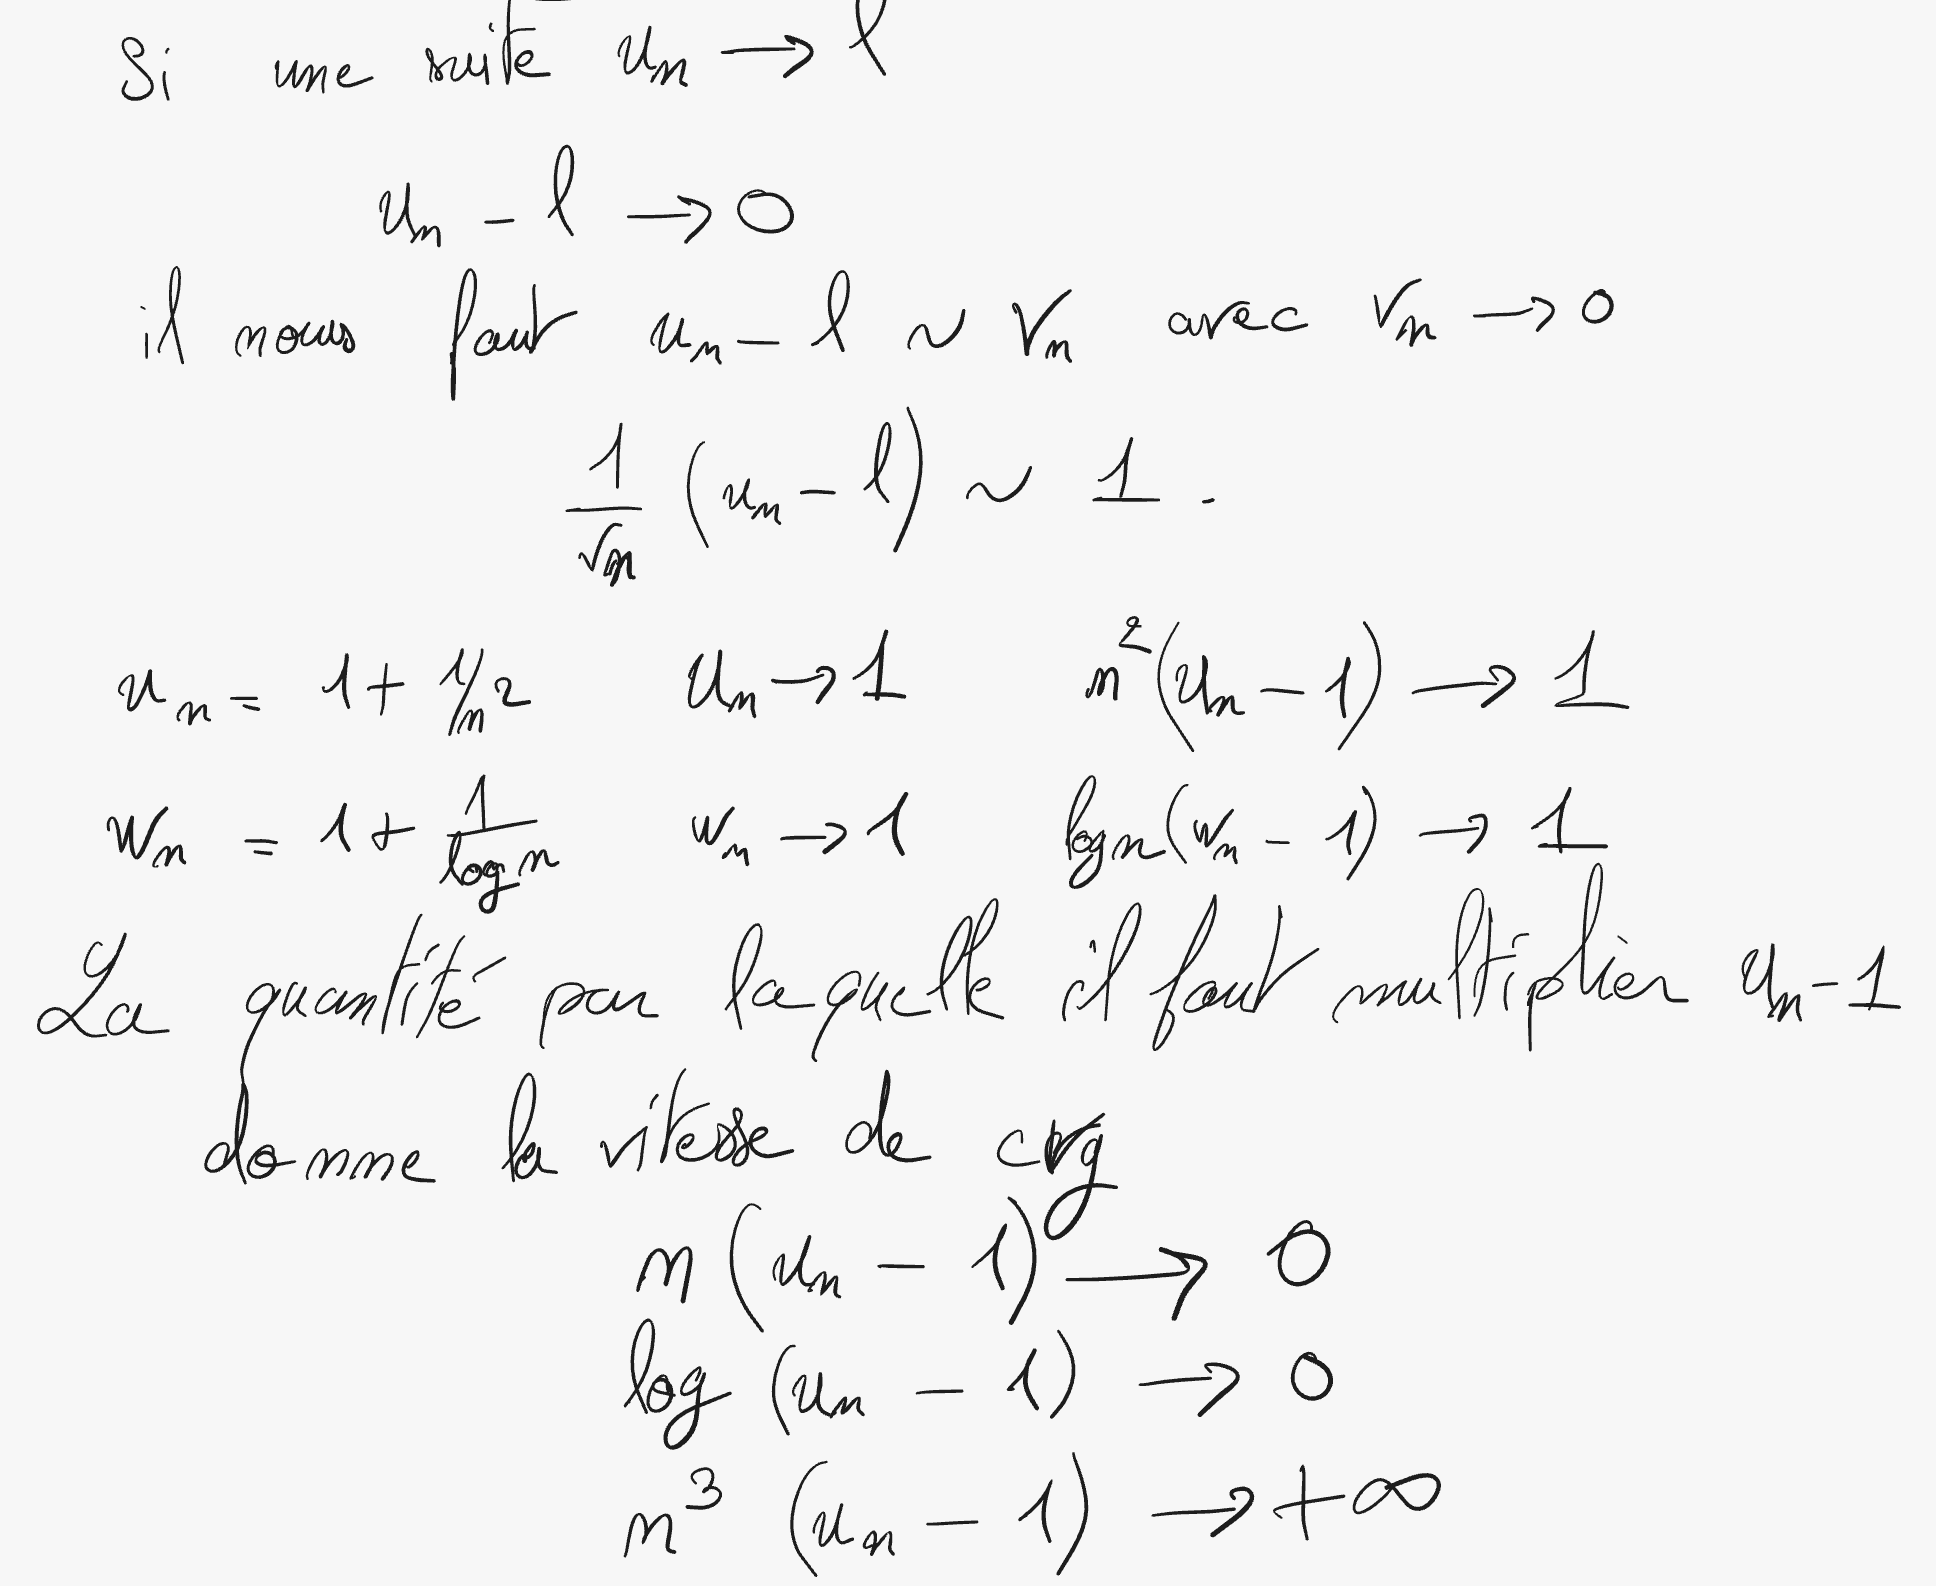 Si une suite uₙ → l
uₙ - l → 0
il nous faut uₙ - l ~ Vₙ avec Vₙ → 0
1/Vₙ (uₙ - l) ~ 1.
uₙ = 1 + 1/n² uₙ → 1 n²(uₙ - 1) → 1
wₙ = 1 + 1/log n wₙ → 1 log n(wₙ - 1) → 1
La quantité par laquelle il faut multiplier uₙ - 1
donne la vitesse de cvg
n(uₙ - 1) → 0
log (uₙ - 1) → 0
n³ (uₙ - 1) → +∞